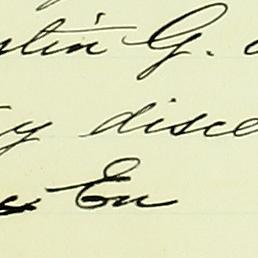 stin G.
y disce
En